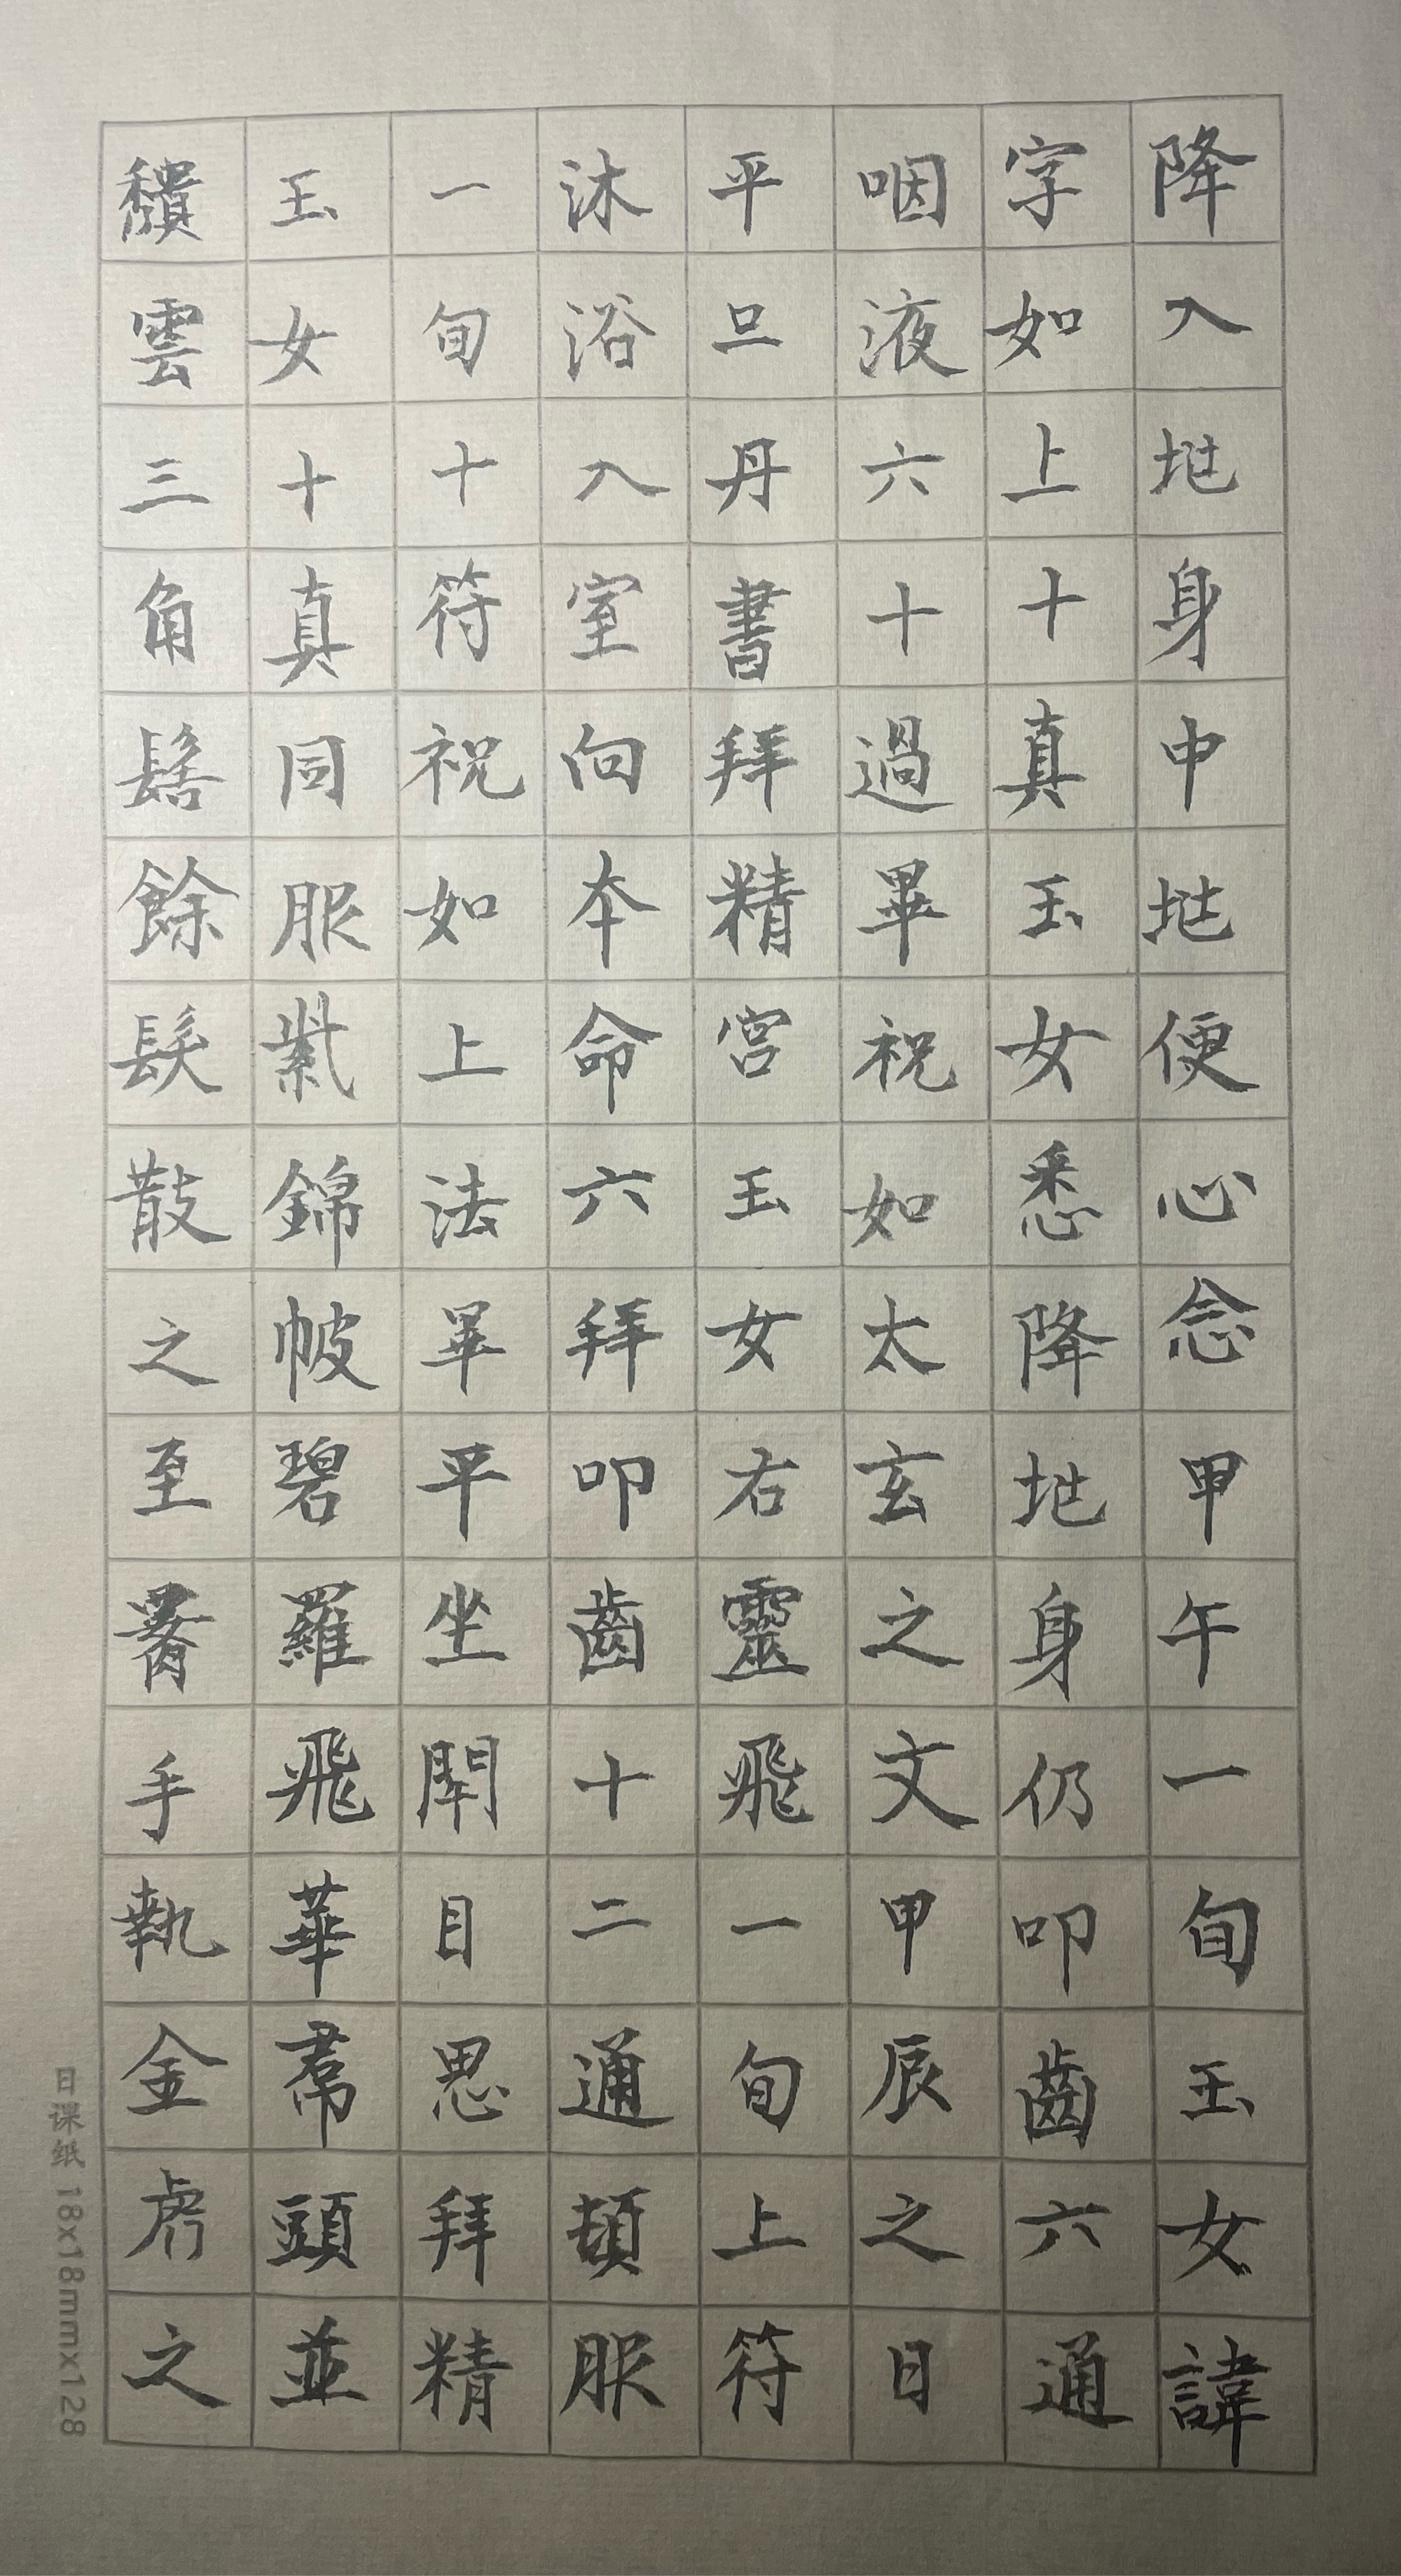 降入地身中地便心念甲午一旬玉女諱
字如上十真玉女悉降地身仍叩齒六通
咽液六十過畢祝如太玄之文甲辰之日
平旦丹書拜精宮玉女右靈飛一旬上符
沐浴入室向本命六拜叩齒十二通頓服
一旬十符祝如上法畢平坐閉目思拜精
玉女十真同服紫錦帔碧羅飛華帬頭並
頹雲三角髻餘髮散之至署手執金虎之
日课纸 18x18mmx128